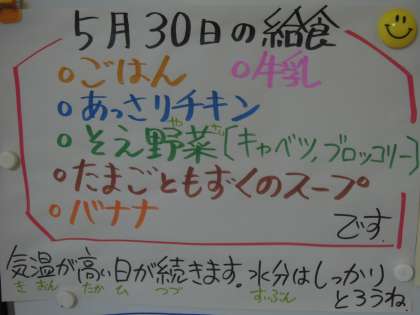 5月30日の給食
○ごはん ○牛乳
○あっさりチキン
○そえ野菜〔キャベツ,ブロッコリー〕
やさい
○たまごともずくのスープ
○バナナ
です。
気温が高い日が続きます。水分はしっかり
きおん たか ひ つづ すいぶん
とろうね。